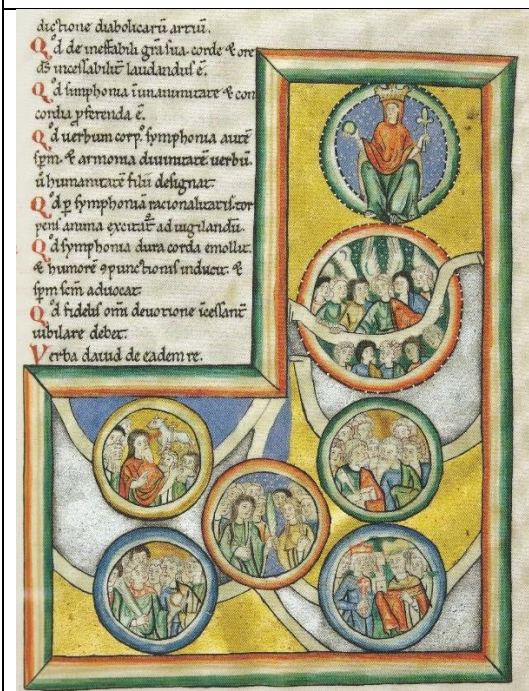 dictione diabolicarū artiū.
Qd de ineffabili grā sua. corde & ore
ds incessabilit laudandus ē.
Qd simphonia ī unanimitate & con
cordia pferenda ē.
Qd uerbum corp. symphonia autē
spm. & armonia diuinitatē uerbū.
ū humanitatē filii designat.
Qd p symphoniā racionalitatis tor
pens anima excitat ad uigilandū.
Qd symphonia dura corda emollit.
& humorē cpunctionis inducit. &
spm scm aduocat.
Qd fidelis omi deuotione īcessant
iubilare debet.
Verba dauid de eadem re.